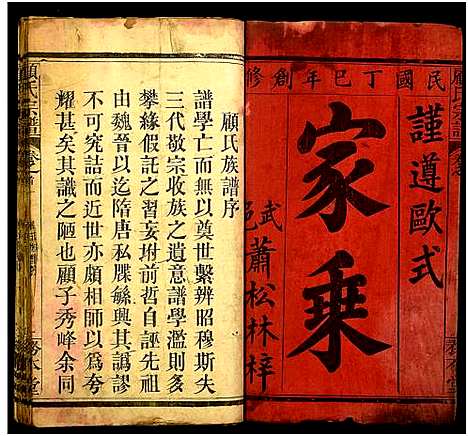 民國丁巳年創修
謹遵歐式
家乘
武邑蕭松林梓
顧氏宗譜
務本堂
顧氏族譜序
譜學亡而無以奠世繫辨昭穆斯失
三代敬宗收族之遺意譜學濫則多
攀緣假託之習妄坿前哲自誣先祖
由魏晉以迄隋唐私牒緐興其譌謬
不可究詰而近世亦頗相師以為夸
耀甚矣其識之陋也顧子秀峰余同
顧氏宗譜
務本堂